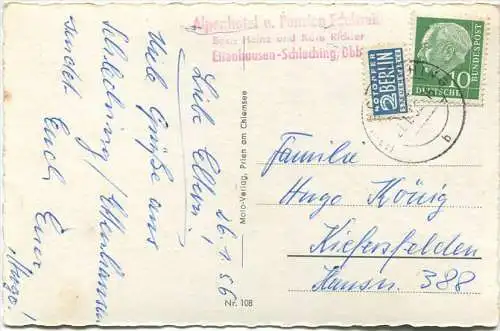 Alpenhotel u. Pension Edelweiß
Bes.: Heinz und Rolo Richter
Ettenhausen-Schleching, Obb.
NOTOPFER
2 BERLIN
STEUERMARKE
10
DEUTSCHE
BUNDESPOST
26.1.56
Liebe Eltern,
Viele Grüße aus
Schleching/Ettenhausen
sendet Euch Euer
Hugo!
Moto-Verlag, Prien am Chiemsee
Nr. 108
Familie
Hugo König
Kiefersfelden
Hausnr. 388